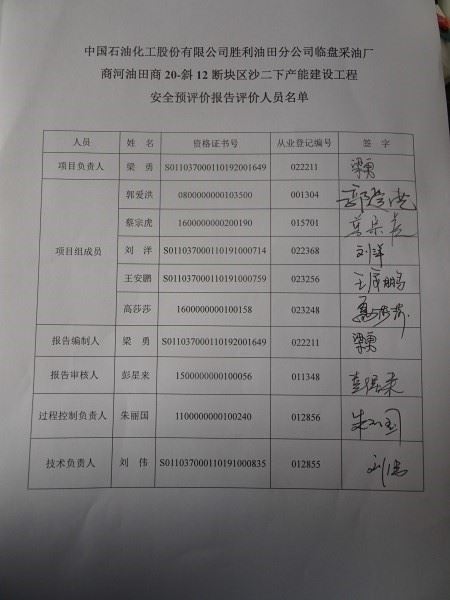 中国石油化工股份有限公司胜利油田分公司临盘采油厂
商河油田商 20-斜 12 断块区沙二下产能建设工程
安全预评价报告评价人员名单
人员 姓 名 资格证书号 从业登记编号 签 字
项目负责人 梁 勇 S011037000110192001649 022211 梁勇
项目组成员 郭爱洪 0800000000103500 001304 郭爱洪
蔡宗虎 1600000000200190 015701
刘 洋 S011037000110191000714 022368 刘洋
王安鹏 S011037000110191000759 023256 王安鹏
高莎莎 1600000000100158 023248 高莎莎
报告编制人 梁 勇 S011037000110192001649 022211 梁勇
报告审核人 彭星来 1500000000100056 011348 彭星来
过程控制负责人 朱丽国 1100000000100240 012856 朱丽国
技术负责人 刘 伟 S011037000110191000835 012855 刘伟